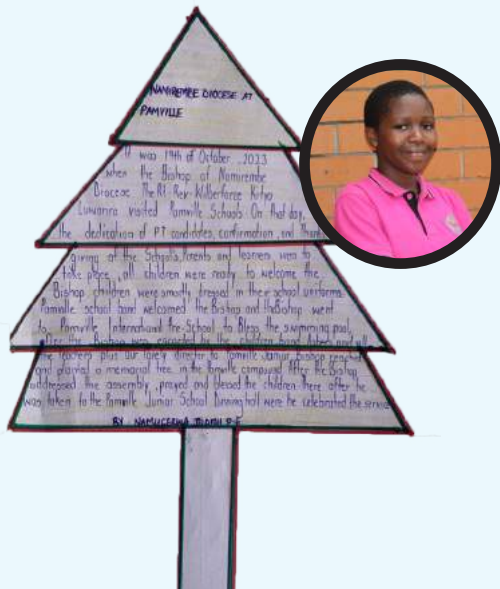 NAMIREMBE DIOCESE AT
PAMVILLE
It was 19th of October, 2023
when the Bishop of Namirembe
Diocese The Rt. Rev. Wilberforce Kityo
Luwalira visited Pamville Schools On that day,
the dedication of P.7 candidates, confirmation, and thanks
giving at the Schools, Parents and learners were to
take place, all children were ready to welcome the
Bishop children were smartly dressed in their school uniforms
Pamville school band welcomed the Bishop and the Bishop went
to Pamville International Pre-School to Bless the swimming pool,
the Bishop was escorted by the children band and all
the teachers plus our lovely director to Pamville Junior Bishop
and planted a memorial tree in the Pamville compound After the Bishop
addressed the assembly, prayed and blessed the children there after he
was taken to the Pamville Junior School Dinning hall were he celebrated the service
BY